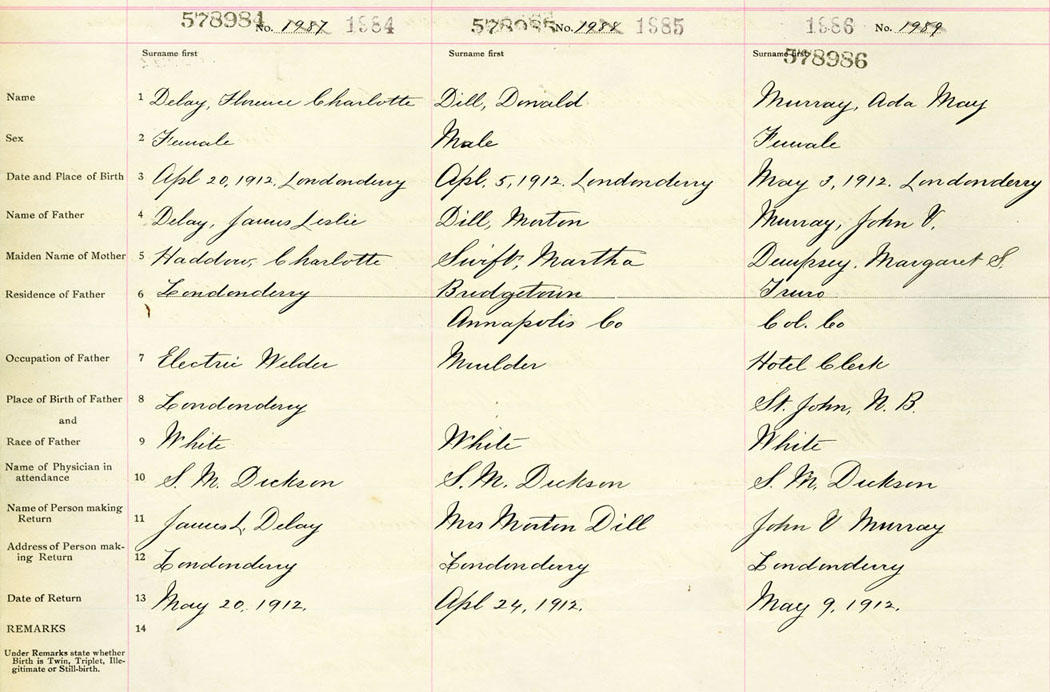 578984 No. 1987 1984 578985 No. 1988 1985 1986 No. 1989
Surname first Surname first Surname first 578986
Name 1 Delay, Florence Charlotte Dill, Donald Murray, Ada May
Sex 2 Female Male Female
Date and Place of Birth 3 Apl 20, 1912. Londonderry Apl. 5, 1912. Londonderry May 3, 1912. Londonderry
Name of Father 4 Delay, James Leslie Dill, Morton Murray, John V.
Maiden Name of Mother 5 Haddow, Charlotte Swift, Martha Dempsey, Margaret S.
Residence of Father 6 Londonderry Bridgetown Truro
Annapolis Co Col. Co
Occupation of Father 7 Electric Welder Moulder Hotel Clerk
Place of Birth of Father 8 Londonderry St. John, N. B.
and
Race of Father 9 White White White
Name of Physician in
attendance 10 S. M. Dickson S. M. Dickson S. M. Dickson
Name of Person making
Return 11 James L. Delay Mrs Morton Dill John V Murray
Address of Person mak-
ing Return 12 Londonderry Londonderry Londonderry
Date of Return 13 May 20, 1912. Apl 24, 1912. May 9, 1912.
REMARKS 14
Under Remarks state whether
Birth is Twin, Triplet, Ille-
gitimate or Still-birth.